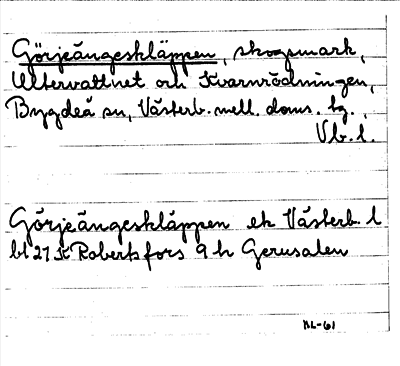 Görjeängeskläppen, skogsmark,
Ultervattnet och Kvarnrödningen,
Bygdeå sn, Västerb. mell. doms. hg.,
Vb. l.
Görjeängeskläppen ek Västerb. l
bl 27 K Robertsfors 9 h Gerusalen
KL-61